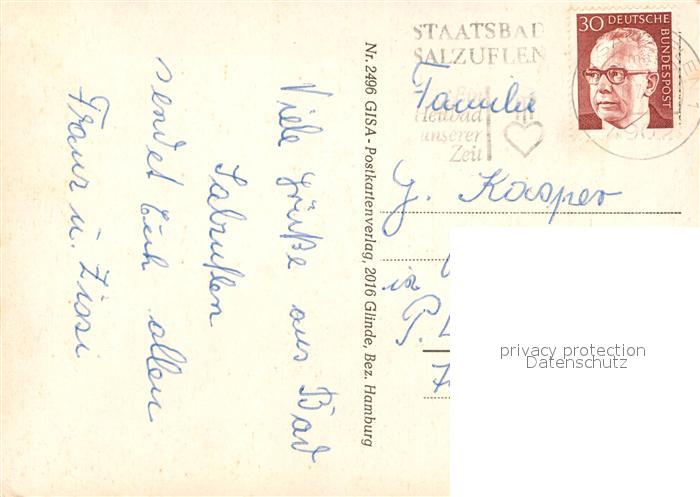 Viele Grüße aus Bad
Salzuflen
sendet Euch allen
Franz u. Zissi
Nr. 2496 GISA-Postkartenverlag, 2016 Glinde, Bez. Hamburg
STAATSBAD
SALZUFLEN
Ein
Heilbad
unserer
Zeit
30 DEUTSCHE
BUNDESPOST
Familie
G. Kasper
in
P.
privacy protection
Datenschutz